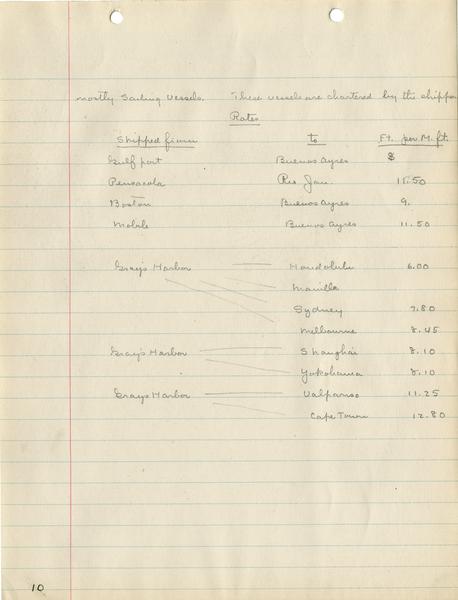 mostly Sailing Vessels. These vessels are chartered by the shipper
Rates
Shipped from to Ft. per M. ft.
Gulfport Buenos Ayres 8
Pensacola Rio Jan. 11.50
Boston Buenos Ayres 9.
Mobile Buenos Ayres 11.50
Gray's Harbor Honolulu 6.00
Manilla
Sydney 7.80
Melbourne 8.45
Gray's Harbor Shanghai 8.10
Yokohama 8.10
Grays Harbor Valparaso 11.25
Cape Town 12.80
10